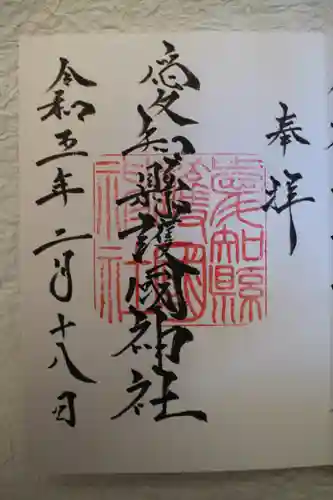 奉拝
愛知縣護國神社
愛知縣護國神社
令和五年二月十八日